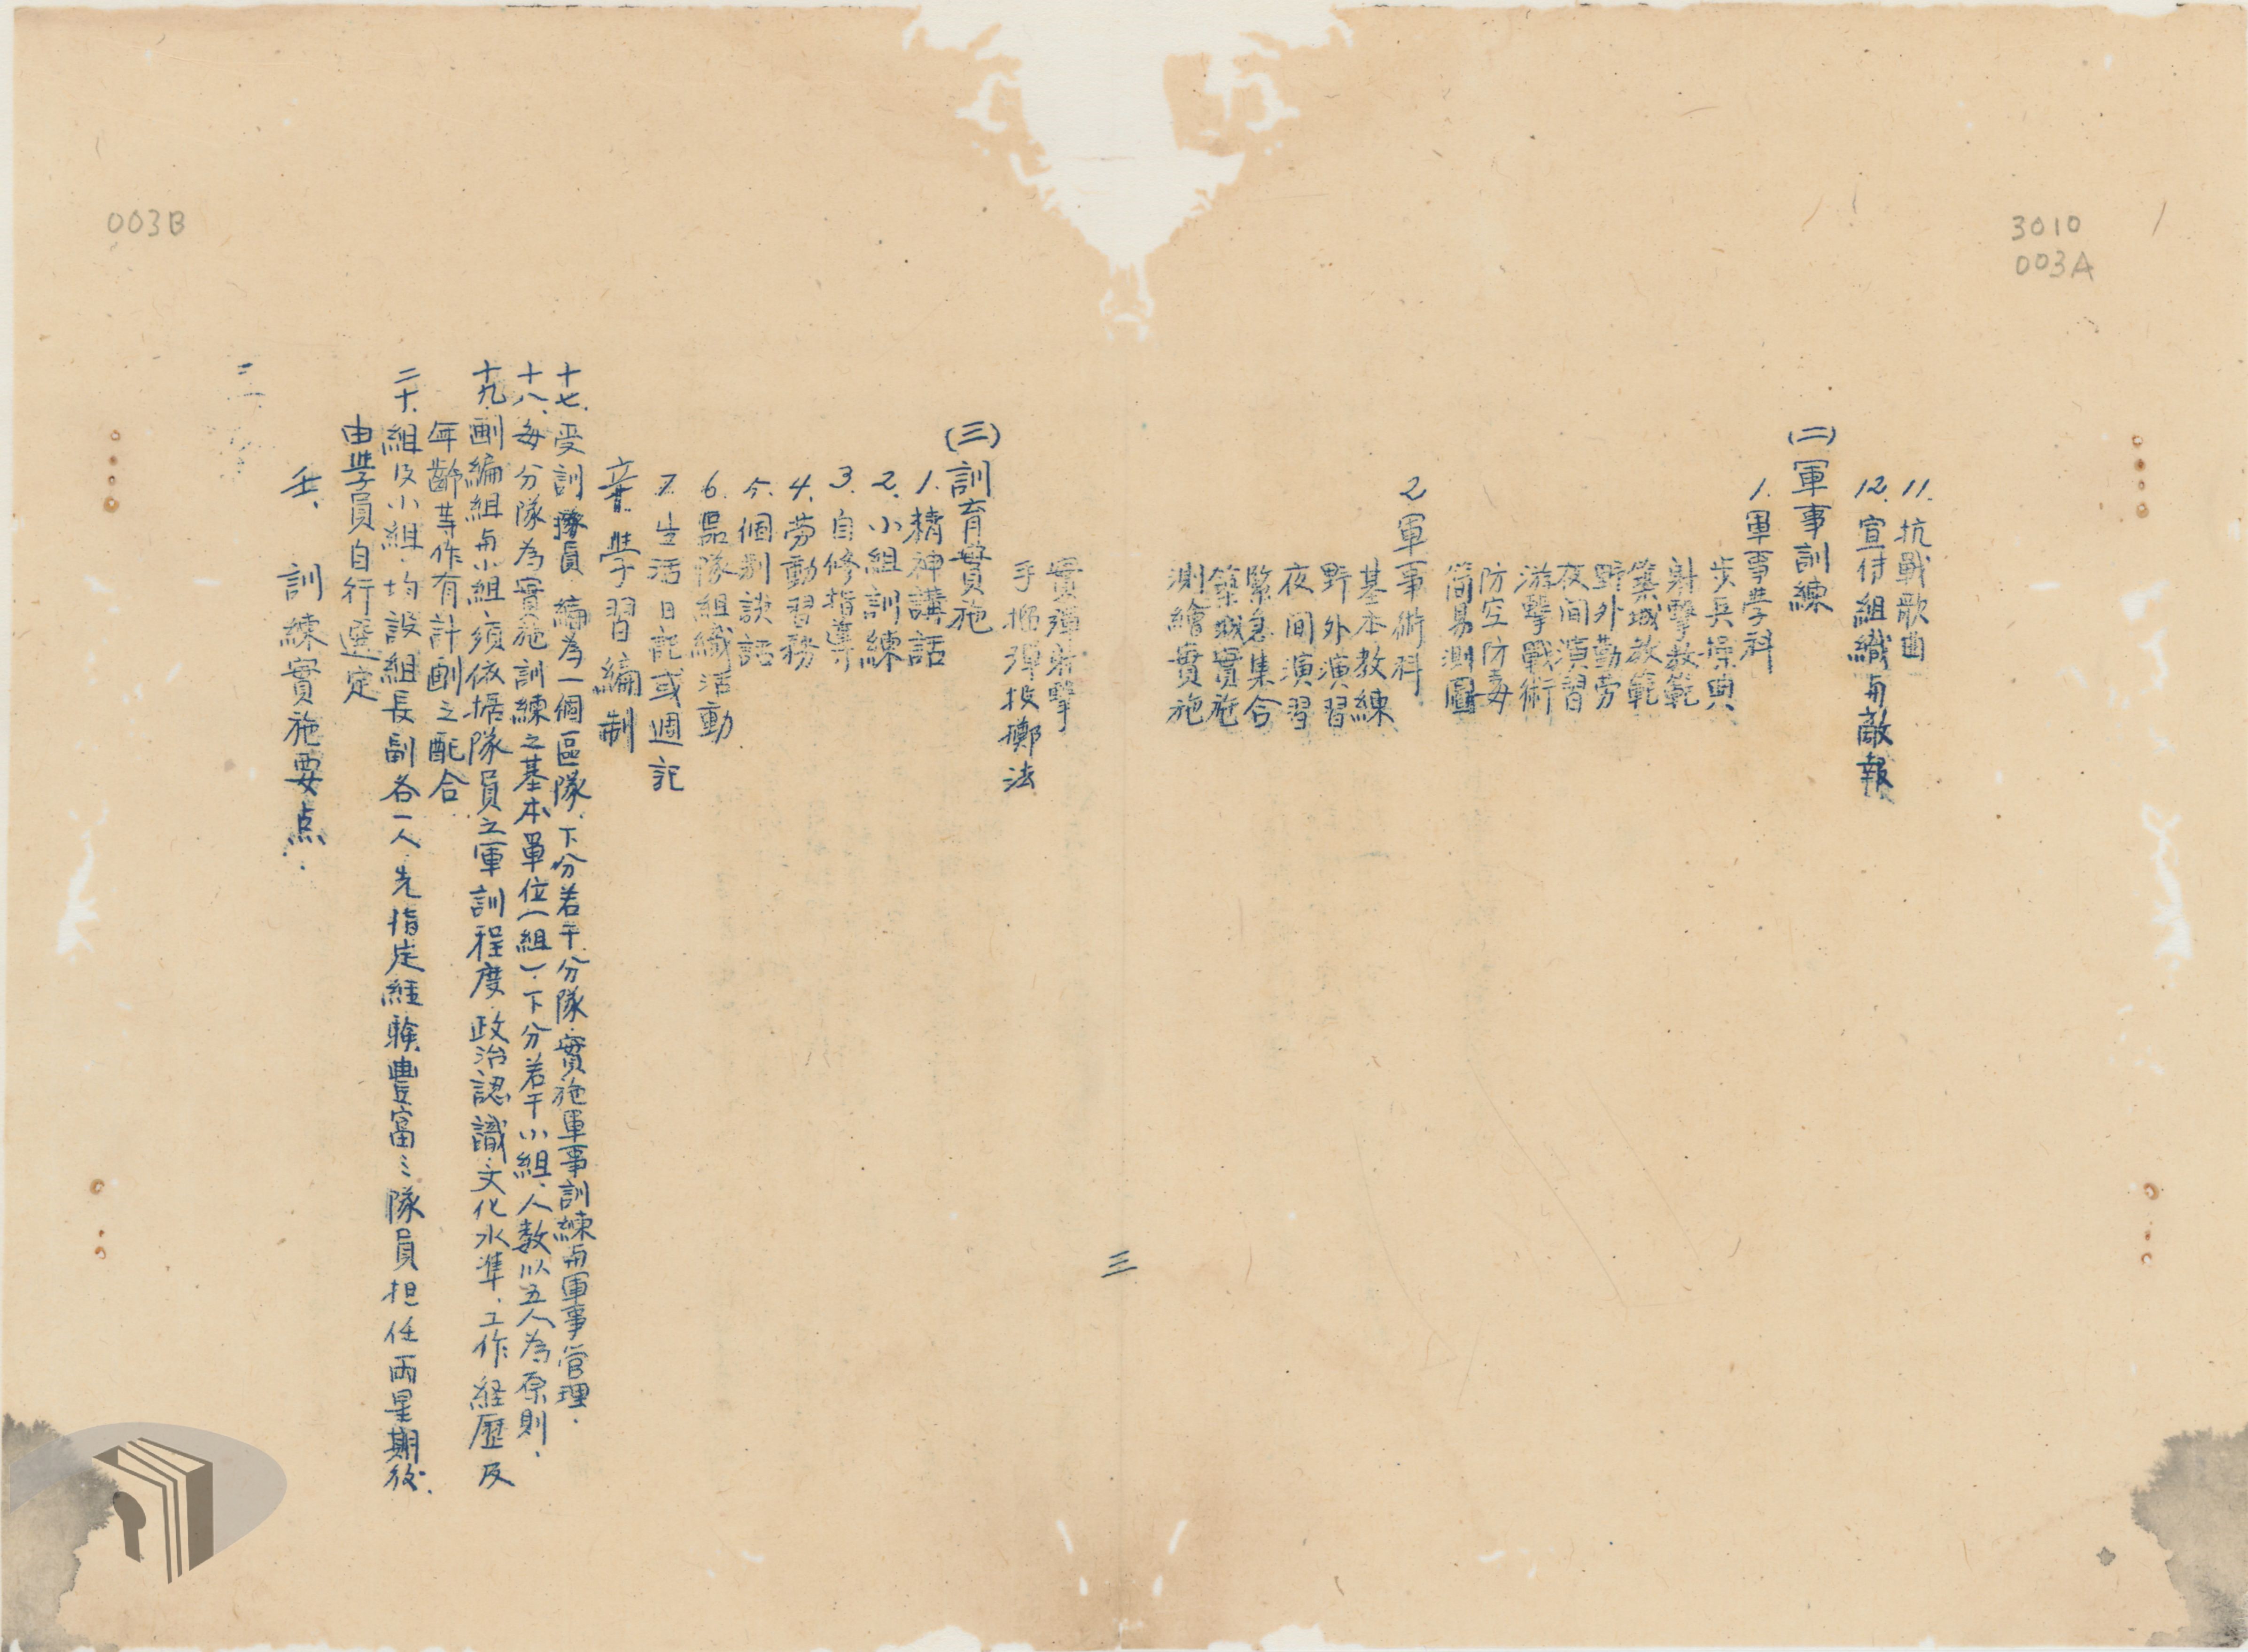 3010
003A
11. 抗戰歌曲
12. 宣傳組織与敵報
(二)軍事訓練
1. 軍事学科
步兵操典
射擊教範
築城教範
野外勤劳
夜间演習
游擊戰術
防空防毒
简易測圖
2 軍事術科
基本教練
野外演習
夜间演習
緊急集合
築城實施
測繪實施
三
實彈射擊
手榴彈投擲法
(三)訓育實施
1. 精神講話
2. 小組訓練
3. 自修指導
4. 劳動習務
5. 個别談話
6. 區隊組織活動
7. 生活日記或週記
学習編制
十七. 受訓隊員編為一個區隊.下分若干分隊.實施軍事訓練与軍事管理.
十八. 每分隊為實施訓練之基本單位(組).下分若干小組、人数以五人為原則.
十九. 劃編組与小組.須依据隊員之軍訓程度.政治認識.文化水準.工作経歷及
年齡等作有計劃之配合.
二十. 組及小組.均設組長副各一人.先指定經驗豊富之隊員担任兩星期後.
由学員自行選定
壬. 訓練實施要点.
003B